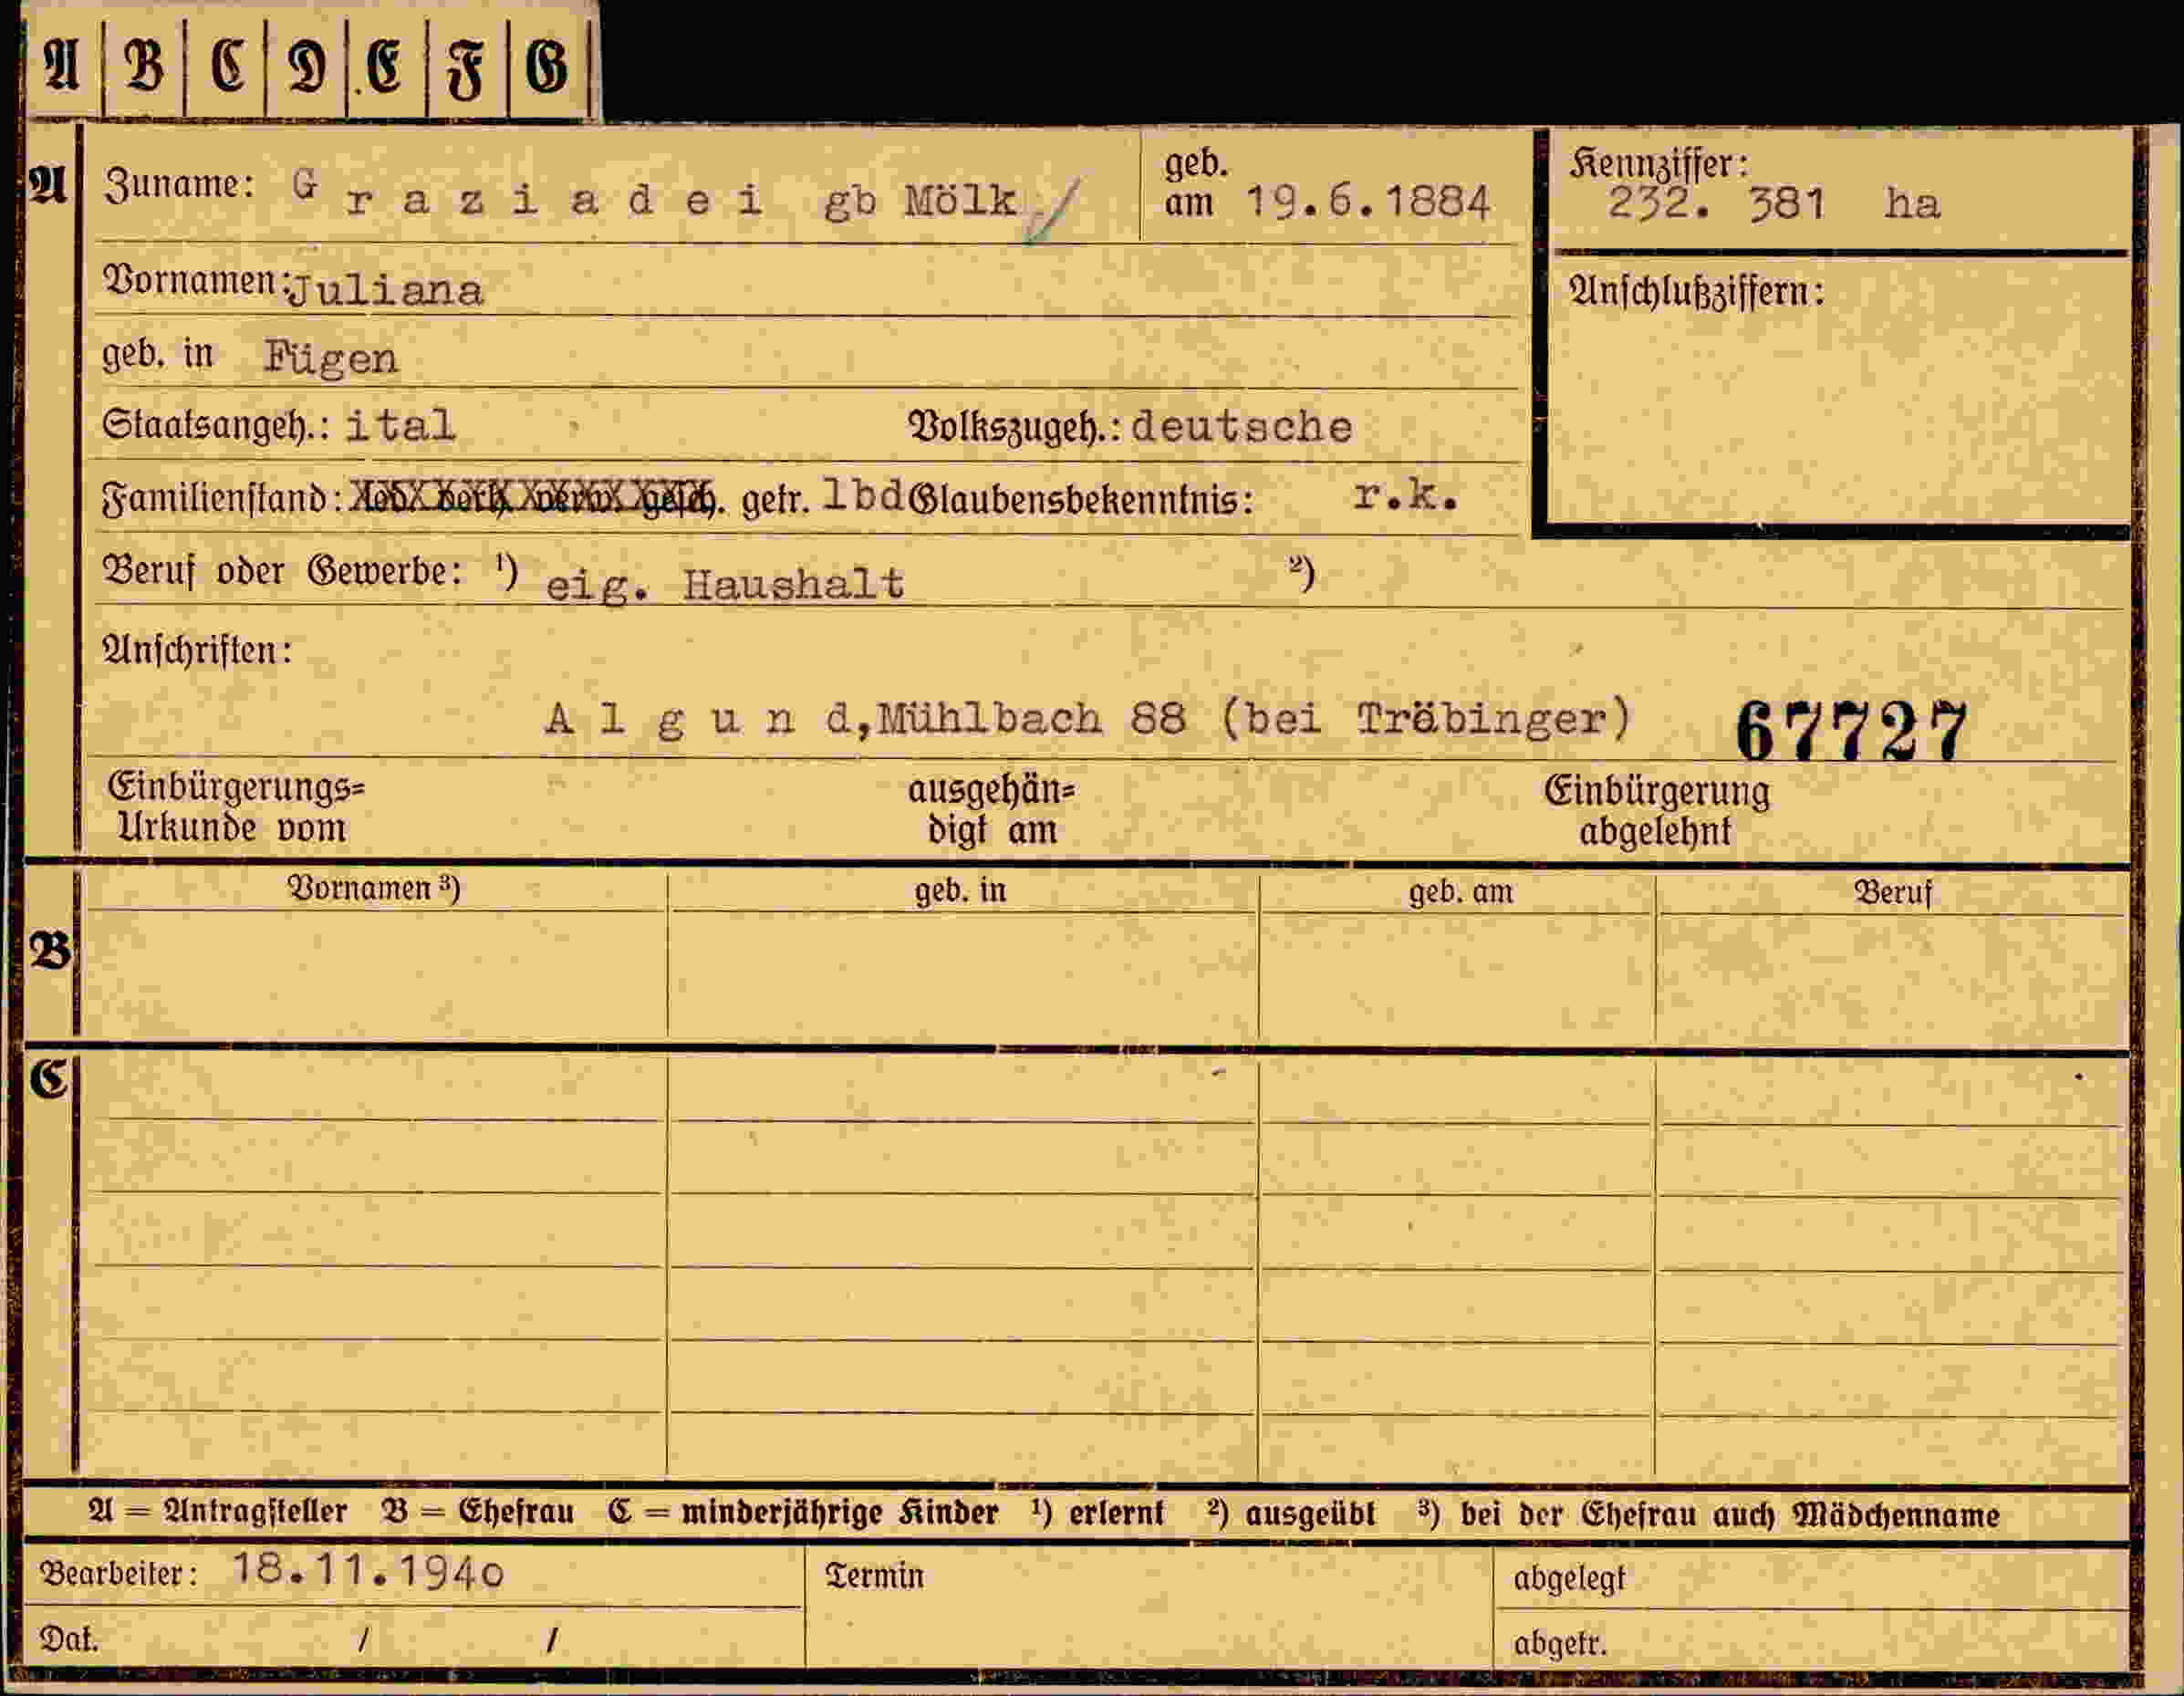 A B C D E F G
A Zuname: G r a z i a d e i gb Mölk / geb. am 19.6.1884 Kennziffer: 232. 381 ha
Vornamen: Juliana Anschlußziffern:
geb. in Fügen
Staatsangeh.: ital Volkszugeh.: deutsche
Familienstand: led. verh. verw. gesch. getr. lbd Glaubensbekenntnis: r.k.
Beruf oder Gewerbe: ¹) eig. Haushalt ²)
Anschriften:
A l g u n d,Mühlbach 88 (bei Träbinger) 67727
Einbürgerungs= ausgehän= Einbürgerung
Urkunde vom digt am abgelehnt
Vornamen ³) geb. in geb. am Beruf
B
C
A = Antragsteller B = Ehefrau C = minderjährige Kinder ¹) erlernt ²) ausgeübt ³) bei der Ehefrau auch Mädchenname
Bearbeiter: 18.11.1940 Termin abgelegt
Dat. / / abgetr.